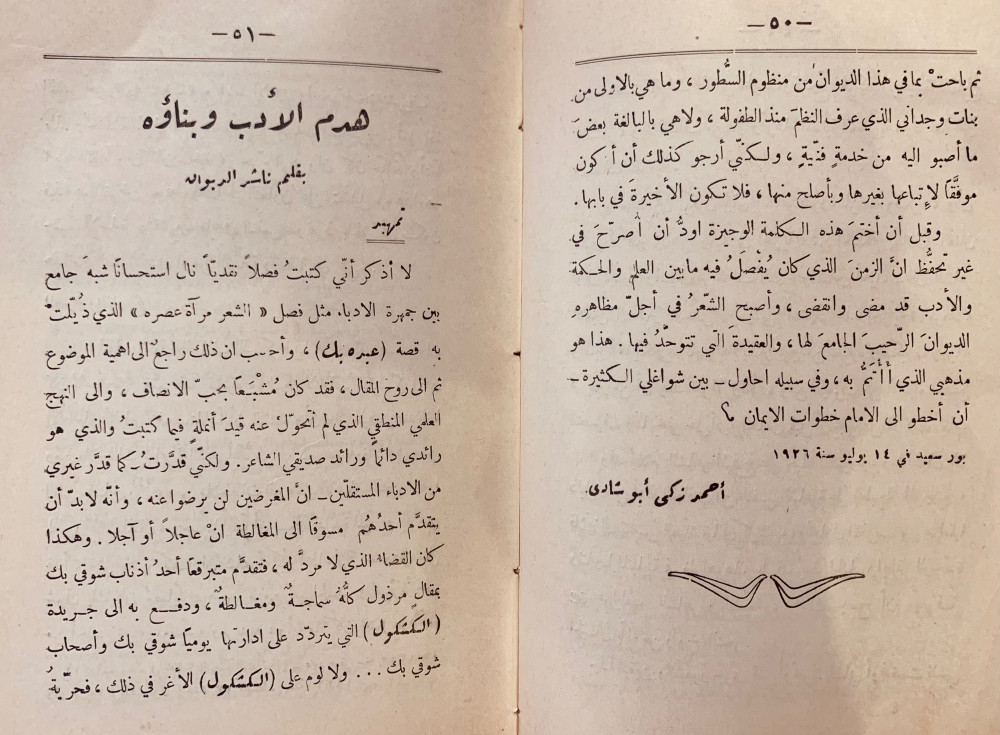 — ٥٠ —
ثم باحتْ بما في هذا الديوان من منظوم السُّطور ، وما هي بالاولى من
بنات وجداني الذي عرف النظمَ منذ الطفولة ، ولا هي بالبالغة بعضَ
ما أصبو اليه من خدمةٍ فنّيةٍ ، ولكنّي أرجو كذلك أن أكون
موفَّقًا لإتباعها بغيرها وبأصلح منها ، فلا تكون الأخيرةَ في بابها .
وقبل أن أختمَ هذه الكلمة الوجيزة اودُّ أن أصرّحَ في
غير تحفُّظ انَّ الزمنَ الذي كان يُفْصَلُ فيه ما بين العلم والحكمة
والأدب قد مضى وانقضى ، وأصبح الشّعرُ في أجلّ مظاهره
الديوانَ الرّحيبَ الجامعَ لها ، والعقيدةَ التي تتوحَّدُ فيها . هذا هو
مذهبي الذي أَأتَمُّ به ، وفي سبيله احاول ـ بين شواغلي الكثيرة ـ
أن أخطو الى الامام خطوات الايمان
بور سعيد في ١٤ يوليو سنة ١٩٢٦
أحمد زكى أبو شادى
— ٥١ —
هدم الأدب وبناؤه
بقلم ناشر الديوان
تمهيد
لا أذكر أنّي كتبتُ فصلاً نقديّاً نال استحسانًا شبهَ جامع
بين جمهرة الادباء مثل فصل « الشعر مرآة عصره » الذي ذُيّلتْ
به قصة (عبده بك) ، وأحسب ان ذلك راجعٌ الى اهمية الموضوع
ثم الى روح المقال ، فقد كان مُشْبَعًا بحبّ الانصاف ، والى النهج
العلمي المنطقي الذي لم أتحوّل عنه قيدَ أنملةٍ فيما كتبتُ والذي هو
رائدي دائماً ورائد صديقي الشاعر . ولكنّي قدَّرتُ ـ كما قدَّر غيري
من الادباء المستقلّين ـ انَّ المغرضين لن يرضوا عنه ، وأنّه لابدّ أن
يتقدَّم أحدُهُم مسوقًا الى المغالطة انْ عاجلاً أو آجلا . وهكذا
كان القضاء الذي لا مردَّ له ، فتقدَّم متبرقعاً أحدُ أذناب شوقي بك
بمقالٍ مرذول كلُّهُ سماجةٌ ومغالطةٌ ، ودفع به الى جريدة
(الكشكول) التي يتردّد على ادارتها يوميًا شوقي بك وأصحاب
شوقي بك ... ولا لوم على (الكشكول) الأغر في ذلك ، فحرّيةُ